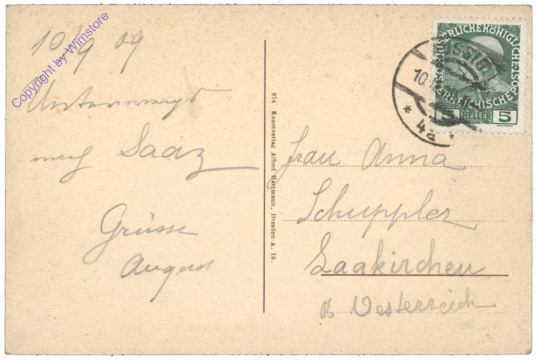 10/9 09
Copyright by Wimstore
Unterwegs
nach Saaz
Grüsse
August
874 Kunstverlag Alfred Hartmann, Dresden A. 16.
AUSSIG
10.
* 4a
KAISERLICHE KÖNIGLICHE
ÖSTERREICHISCHE POST
5 HELLER 5
Frau Anna
Schuppler
Laakirchen
Ob Oesterreich